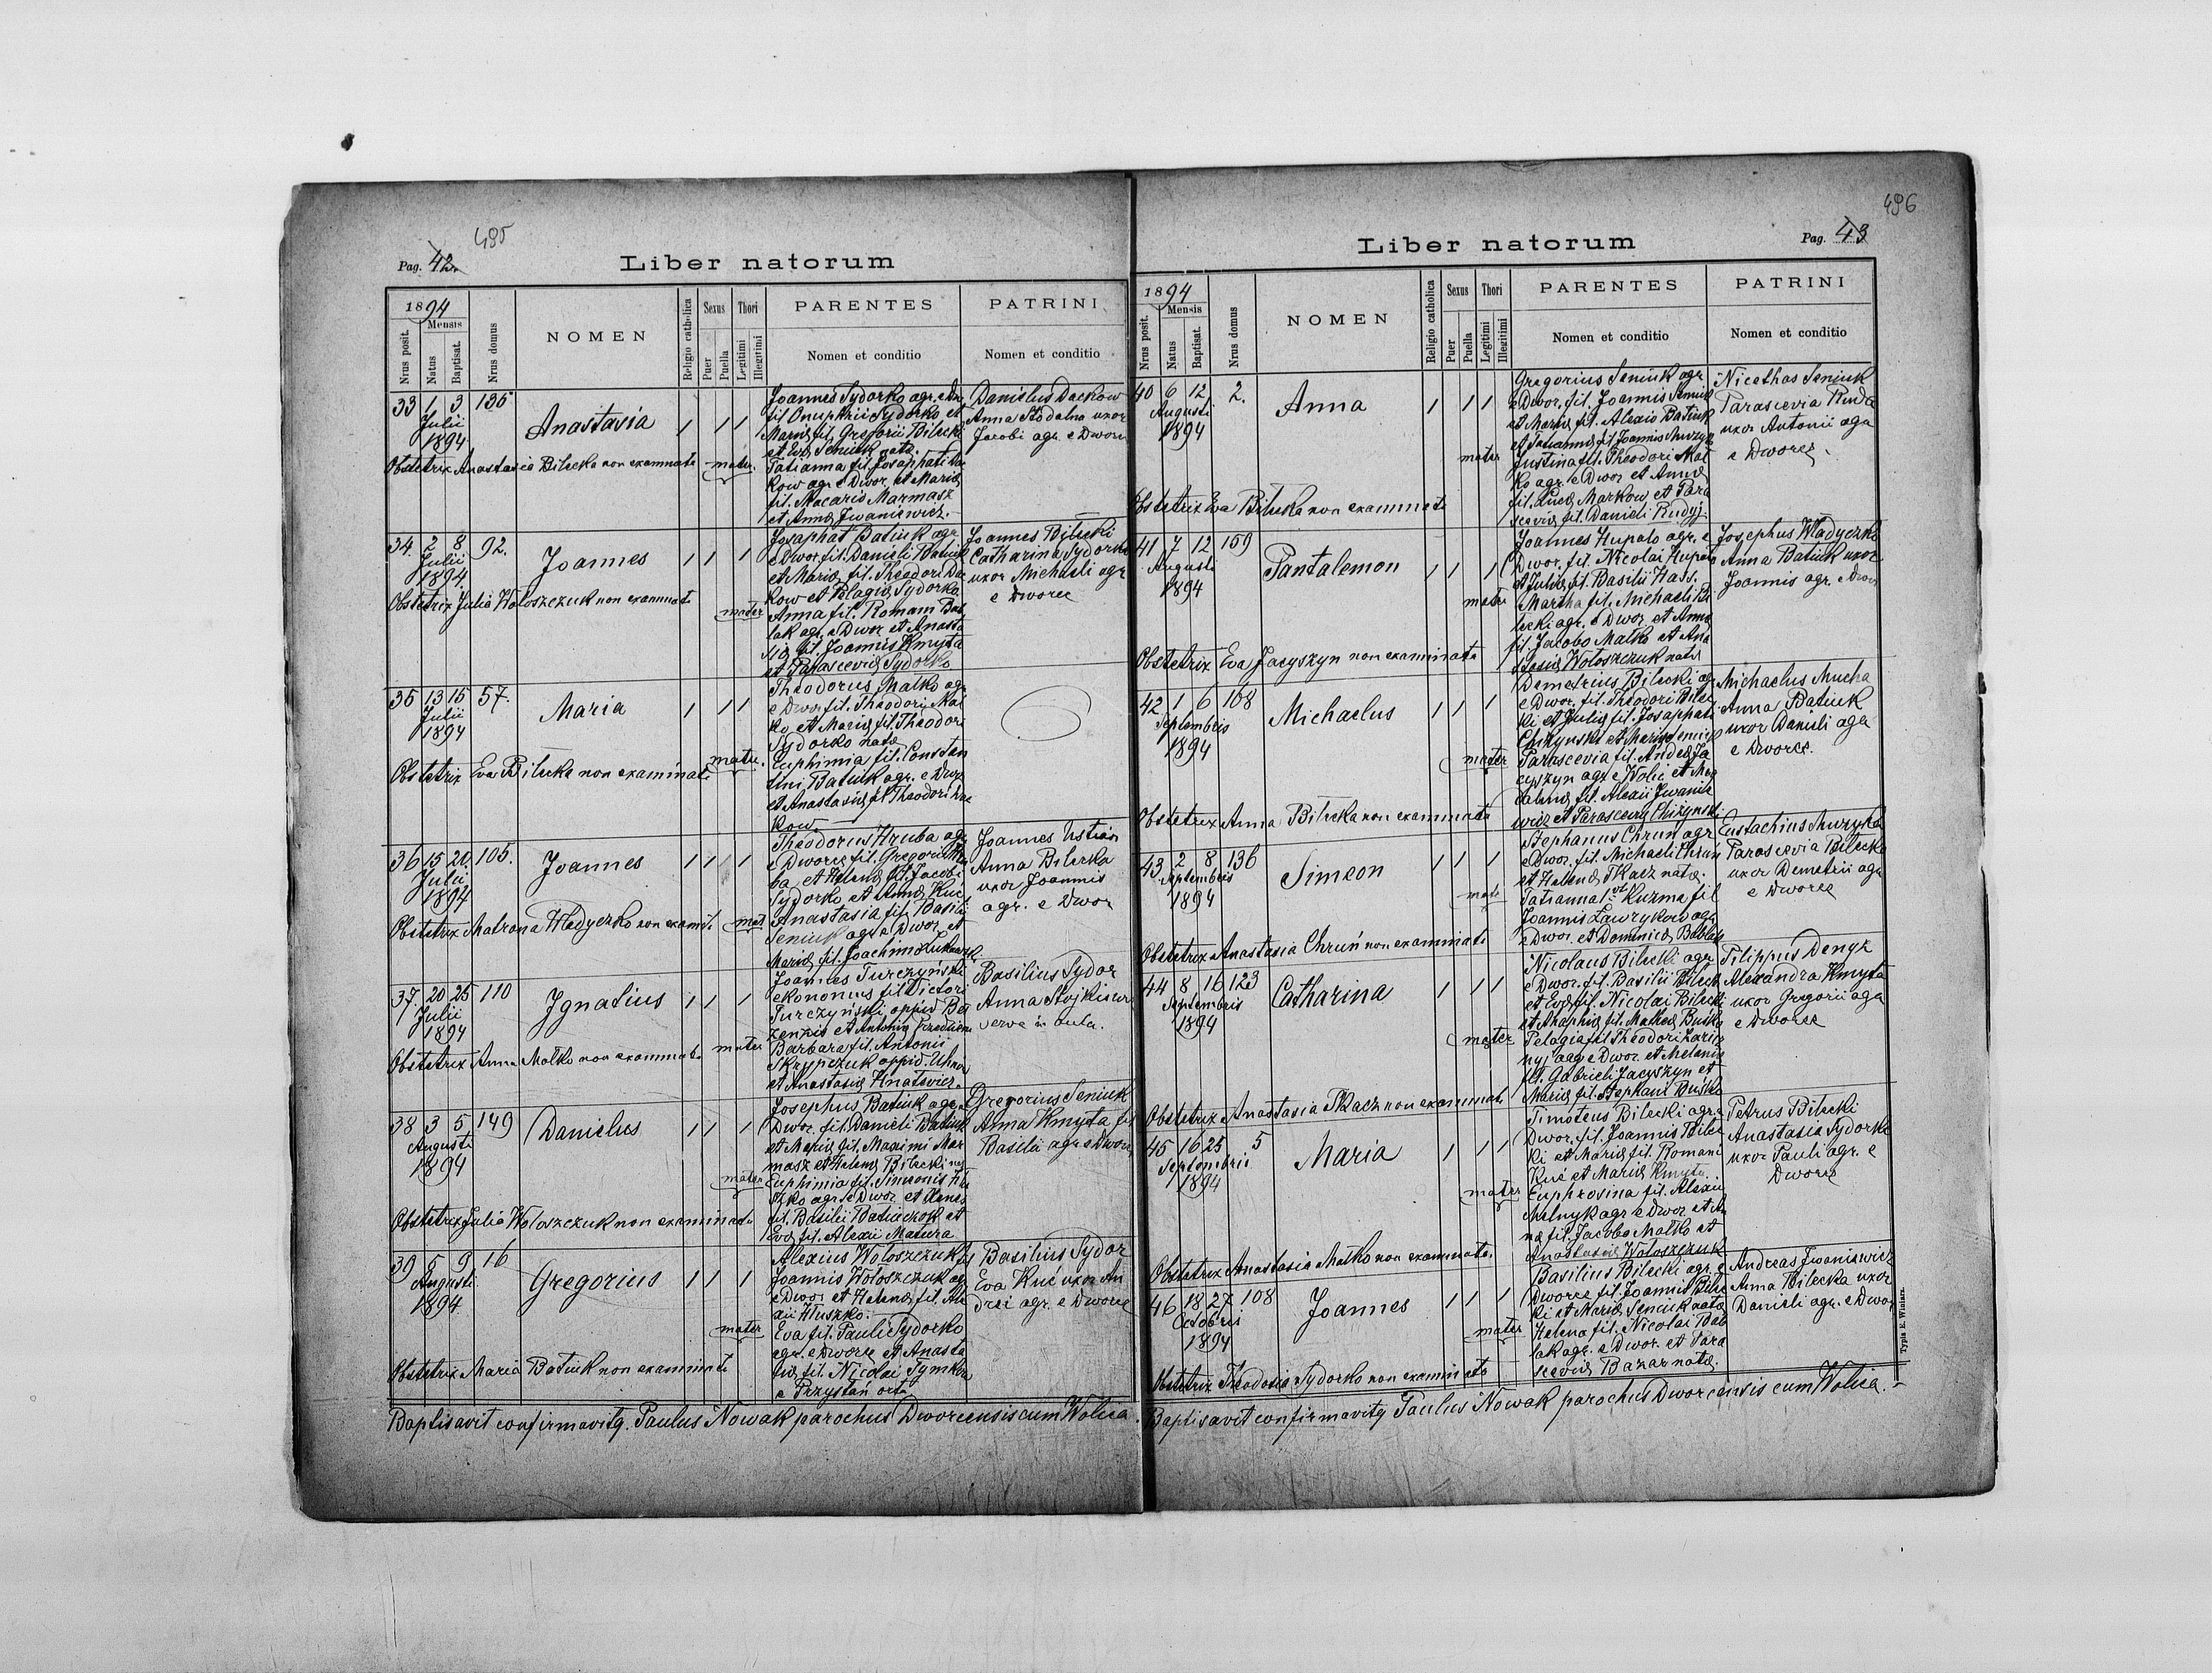 495
Pag. 42.
Liber natorum
1894
Mensis
Nrus posit.
Natus
Baptisat.
Nrus domus
NOMEN
Religio catholica
Sexus
Puer
Puella
Thori
Legitimi
Illegitimi
PARENTES
Nomen et conditio
PATRINI
Nomen et conditio
33 1 3 135
Julii
1894
Anastasia
Joannes Sydorko agr. e Dw
fil Onuphrii Sydorko et
Mariæ fil. Gregorii Bilecki
et Evæ Seniuk nata.
mater.
Tatianna fil. Josaphati Da
kow agr. e Dwor. et Mariæ
fil. Macario Marmasz
et Annæ Jwaniewicz.
Danielus Dackow
Anna Stodalna uxor
Jacobi agr. e Dworce
Obstetrix Anastasia Bilecka non examinata
34. 2 8 92.
Julii
1894
Joannes
Josaphat Batiuk agr.
e Dwor. fil. Danieli Batiuk
et Mariæ fil. Theodori Da
kow et Pelagiæ Sydorko
mater
Anna fil. Romani Bab
lak agr. e Dwor. et Anasta
siæ fil. Joannis Kmyta
et Parasceviæ Sydorko
Joannes Bilecki
Catharina Sydorko
uxor Michaeli agr
e Dworce
Obstetrix Julia Wołoszczuk non examinata
35 13 15 57.
Julii
1894
Maria
Theodorus Małko agr
e Dwor fil. Theodori Mał
ko et Mariæ fil. Theodori
Sydorko natæ
mater.
Euphimia fil. Constan
tini Batiuk agr. e Dwor
et Anastasiæ fil Theodori Da
kow
Obstetrix Eva Bilecka non examinata
36 15 20. 105.
Julii
1894
Joannes
Theodorus Hruba agr
e Dworce fil. Gregorii Hru
ba et Helenæ fil. Jacobi
Sydorko et Annæ Kuć
mat
Anastasia fil. Basili
Seniuk agr e Dwor. et
Mariæ fil. Joachimi
Joannes Ustian
Anna Bilecka
uxor Joannis
agr. e Dwor
Obstetrix Matrona Władyczko non examit.
37. 20 25 110
Julii
1894
Jgnatius
Joannes Turczyński
ekonomus fil Victori
Turczyński oppid Be
mater
Barbara fil. Antonii
Skrypczuk oppid. Uhnow
et Anastasiæ Hnatewicz.
Basilius Sydor
Anna
serva in aula.
Obstetrix Anna Małko non examinata
38 3 5 149
Augusti
1894
Danielus
Josephus Batiuk agr. e
Dwor. fil. Danieli Batiuk
et Mariæ fil. Maximi Mar
masz et Helenæ Bilecki nat
mater
Euphimia fil. Simeonis
agr. e Dwor. et Annæ
fil. Basilii et
Evæ fil. Alexii Matura
Gregorius Seniuk
Anna Kmyta fil
Basilii agr. e Dworce
Obstetrix Julia Wołoszczuk non examinata
39 5 9 16
Augusti
1894
Gregorius
Alexius Wołoszczuk fil
Joannis Wołoszczuk agr
e Dwor et Helenæ fil. Ale
xii Hłuszko.
mater
Eva fil. Pauli Sydorko
agr. e Dworce et Anasta
siæ fil. Nicolai Tymkow
e Przystań orta
Basilius Sydor
Eva Kuć uxor An
drei agr. e Dworce
Obstetrix Maria Batiuk non examinata
Baptisavit confirmavitq. Paulus Nowak parochus Dworcensis cum Wolica.
496
Pag. 43
Liber natorum
1894
Mensis
Nrus posit.
Natus
Baptisat.
Nrus domus
NOMEN
Religio catholica
Sexus
Puer
Puella
Thori
Legitimi
Illegitimi
PARENTES
Nomen et conditio
PATRINI
Nomen et conditio
40 6 12 2.
Augusti
1894
Anna
Gregorius Seniuk agr.
e Dwor. fil. Joannis Seniuk
et Mariæ fil. Alexio Batiuk
et Tatiannæ fil Joannis
mater
Justina fil. Theodori Mał
ko agr. e Dwor et Annæ
fil. Lucæ Markow et Para
sceviæ fil. Danieli Rudyj
Nicethas Seniuk
Parascevia Ruda
uxor Antonii agr
e Dworce.
Obstetrix Eva Bilecka non examinata
41 7 12 159
Augusti
1894
Pantalemon
Joannes Hupało agr. e
Dwor. fil. Nicolai Hupało
et Juliæ fil. Basilii Hass.
mater
Martha fil. Michaeli Bi
lecki agr. e Dwor et Annæ
fil. Jacobo Małko et Ana
stasiæ Wołoszczuk natæ
Josephus Władyczko
Anna Batiuk uxor
Joannis agr. e Dwor
Obstetrix Eva Jacyszyn non examinata
42 1 6 168
Septembris
1894
Michaelus
Demetrius Bilecki agr
e Dwor. fil. Theodori Bilec
ki et Juliæ fil. Josaphati
Chiżynski et Mariæ Seniuk
mater
Parascevia fil. Andreæ Ja
cyszyn agr. e Wolic et Mag
dalenæ fil. Alexii Jwanie
wicz et Parasceviæ Chiżynski
Michaelus Mucha
Anna Batiuk
uxor Danieli agr
e Dworce.
Obstetrix Anna Bilecka non examinata
43 2 8 136
Septembris
1894
Simeon
Stephanus Chruń agr
e Dwor. fil. Michaeli Chruń
et Helenæ Tkacz natæ.
mater
Tatianna Kuzma fil
Joannis Ławrykow agr
e Dwor. et Dominicæ Bablak
Eustachius
Parascevia Bilecka
uxor Demetrii agr
e Dworce
Obstetrix Anastasia Chruń non examinata
44 8 16 123
Septembris
1894
Catharina
Nicolaus Bilecki agr
e Dwor. fil. Basilii Bilecki
et Evæ fil. Nicolai Bilecki
et Ahaphiæ fil. Matheæ Buśko
mater
Pelagia fil Theodori
agr. e Dwor. et Melaniæ
fil. Gabrieli Jacyszyn et
Mariæ fil. Stephani Buśko
Filippus Dengz
Alexandra Kmyta
uxor Gregorii agr
e Dworce
Obstetrix Anastasia Tkacz non examinat.
45 16 25 5
Septembris
1894
Maria
Timoteus Bilecki agr. e
Dwor. fil. Joannis Bilec
ki et Mariæ fil. Romani
Kuć et Mariæ Kmyta
mater
Euphrosina fil. Alexii
Melnyk agr e Dwor et An
na fil. Jacobo Małko et
Anastasiæ Wołoszczuk
Petrus Bilecki
Anastasia Sydorko
uxor Pauli agr. e
Dworce
Obstetrix Anastasia Małko non examinata.
46 18 27 108
Octobris
1894
Joannes
Basilius Bilecki agr. e
Dworce fil. Joannis Bilec
ki et Mariæ Seniuk natæ
mater
Helena fil. Nicolai Bab
lak agr. e Dwor. et Para
sceviæ Bazar natæ.
Andreas Jwaniewicz
Anna Bilecka uxor
Danieli agr. e Dwor
Obstetrix Theodosia Sydorko non examinata
Typis E. Winiarz.
Baptisavit confirmavitq Paulus Nowak parochus Dworcensis cum Wolica.